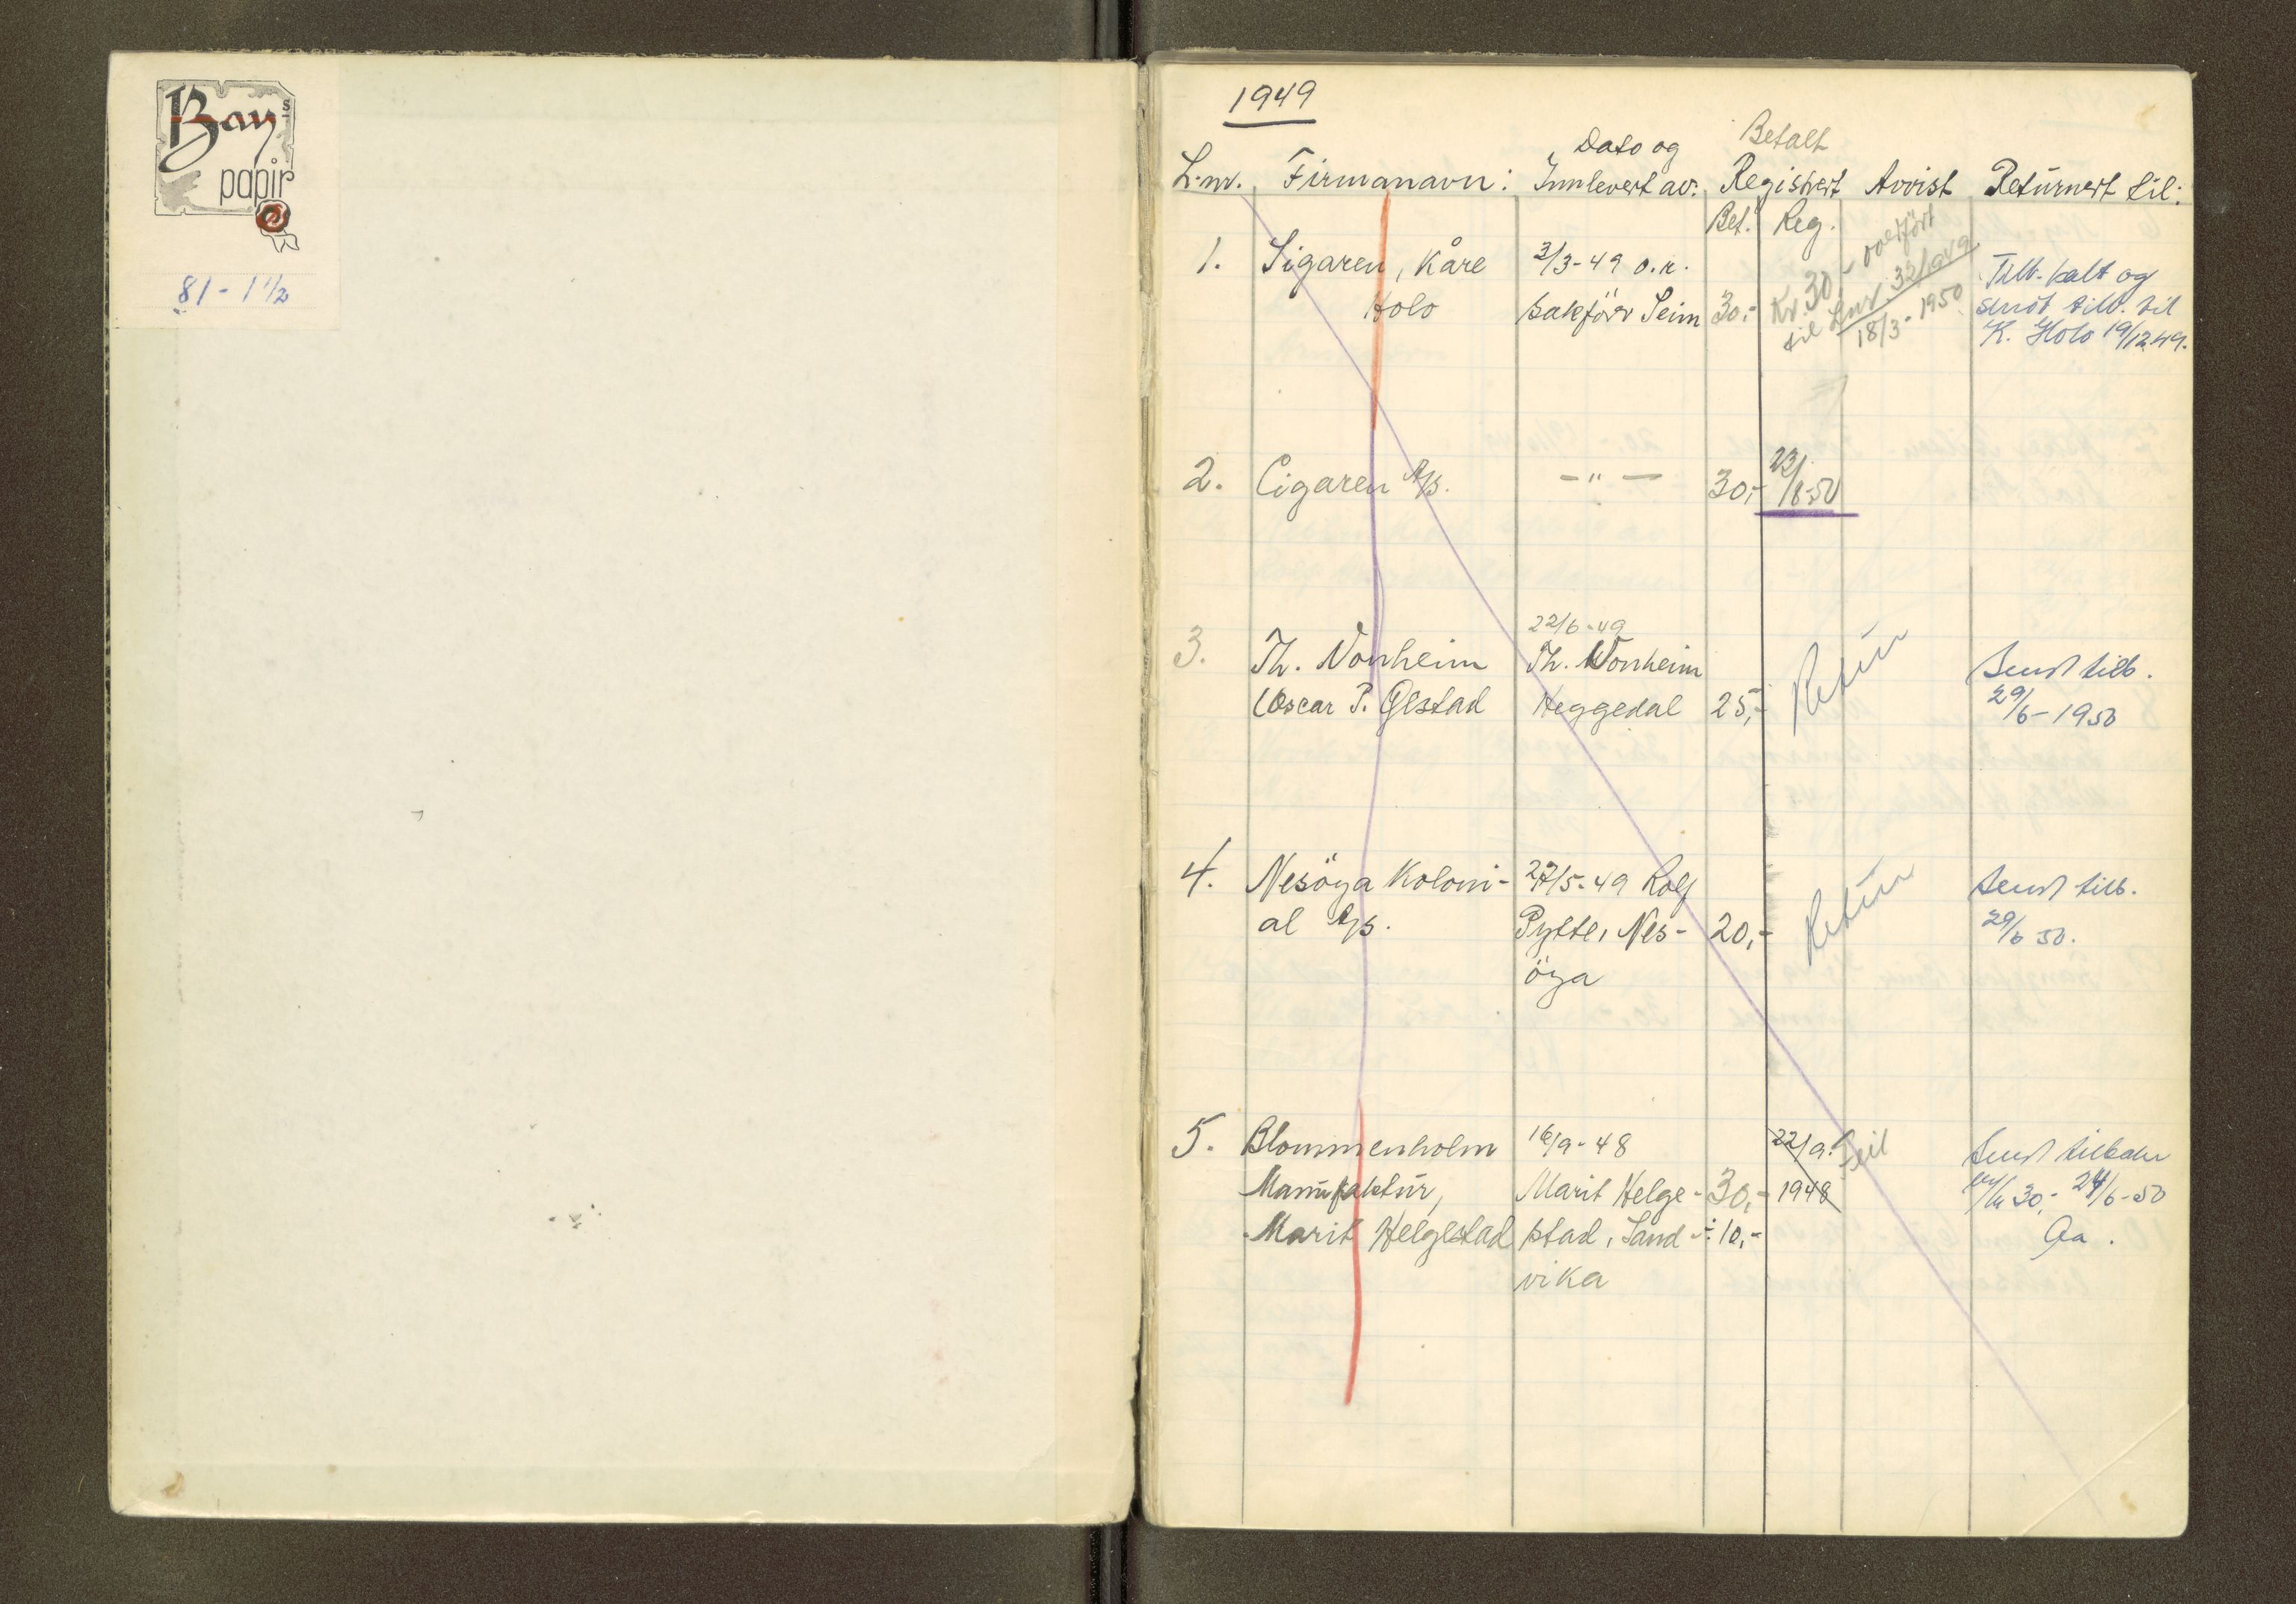 Bay's
papir
81-1 1/2
1949
Dato og Betalt
L.nr. Firmanavn: Innlevert av: Registrert Avvist Returnert til:
Bet. Reg.
1. Sigaren, Kåre 3/3-49 o.r.
Holo sakförer Seim 30,-
Kr. 30,- overfört
til Lnr. 32/1949
18/3-1950
Tilb.kalt og
sendt tilb. til
K. Holo 19/12.49.
2. Cigaren A/S. -"- 30,- 23/8-50
3. Th. Vonheim
(Oscar P. Gjestad
22/6-49
Th. Wonheim
Heggedal 25,- Retur
Sendt tilb.
29/6-1950
4. Nesöya Koloni-
al A/S.
27/5-49 Rolf
Pytte, Nes-
öya
20,- Retur
Sendt tilb.
29/6 50.
5. Blommenholm
Manufaktur,
Marit Helgestad
16/9-48
Marit Helge-
stad, Sand-
vika
30,-
÷10,-
22/9.
1948
Feil
Sendt tilbake
30,- 24/6-50
Aa.